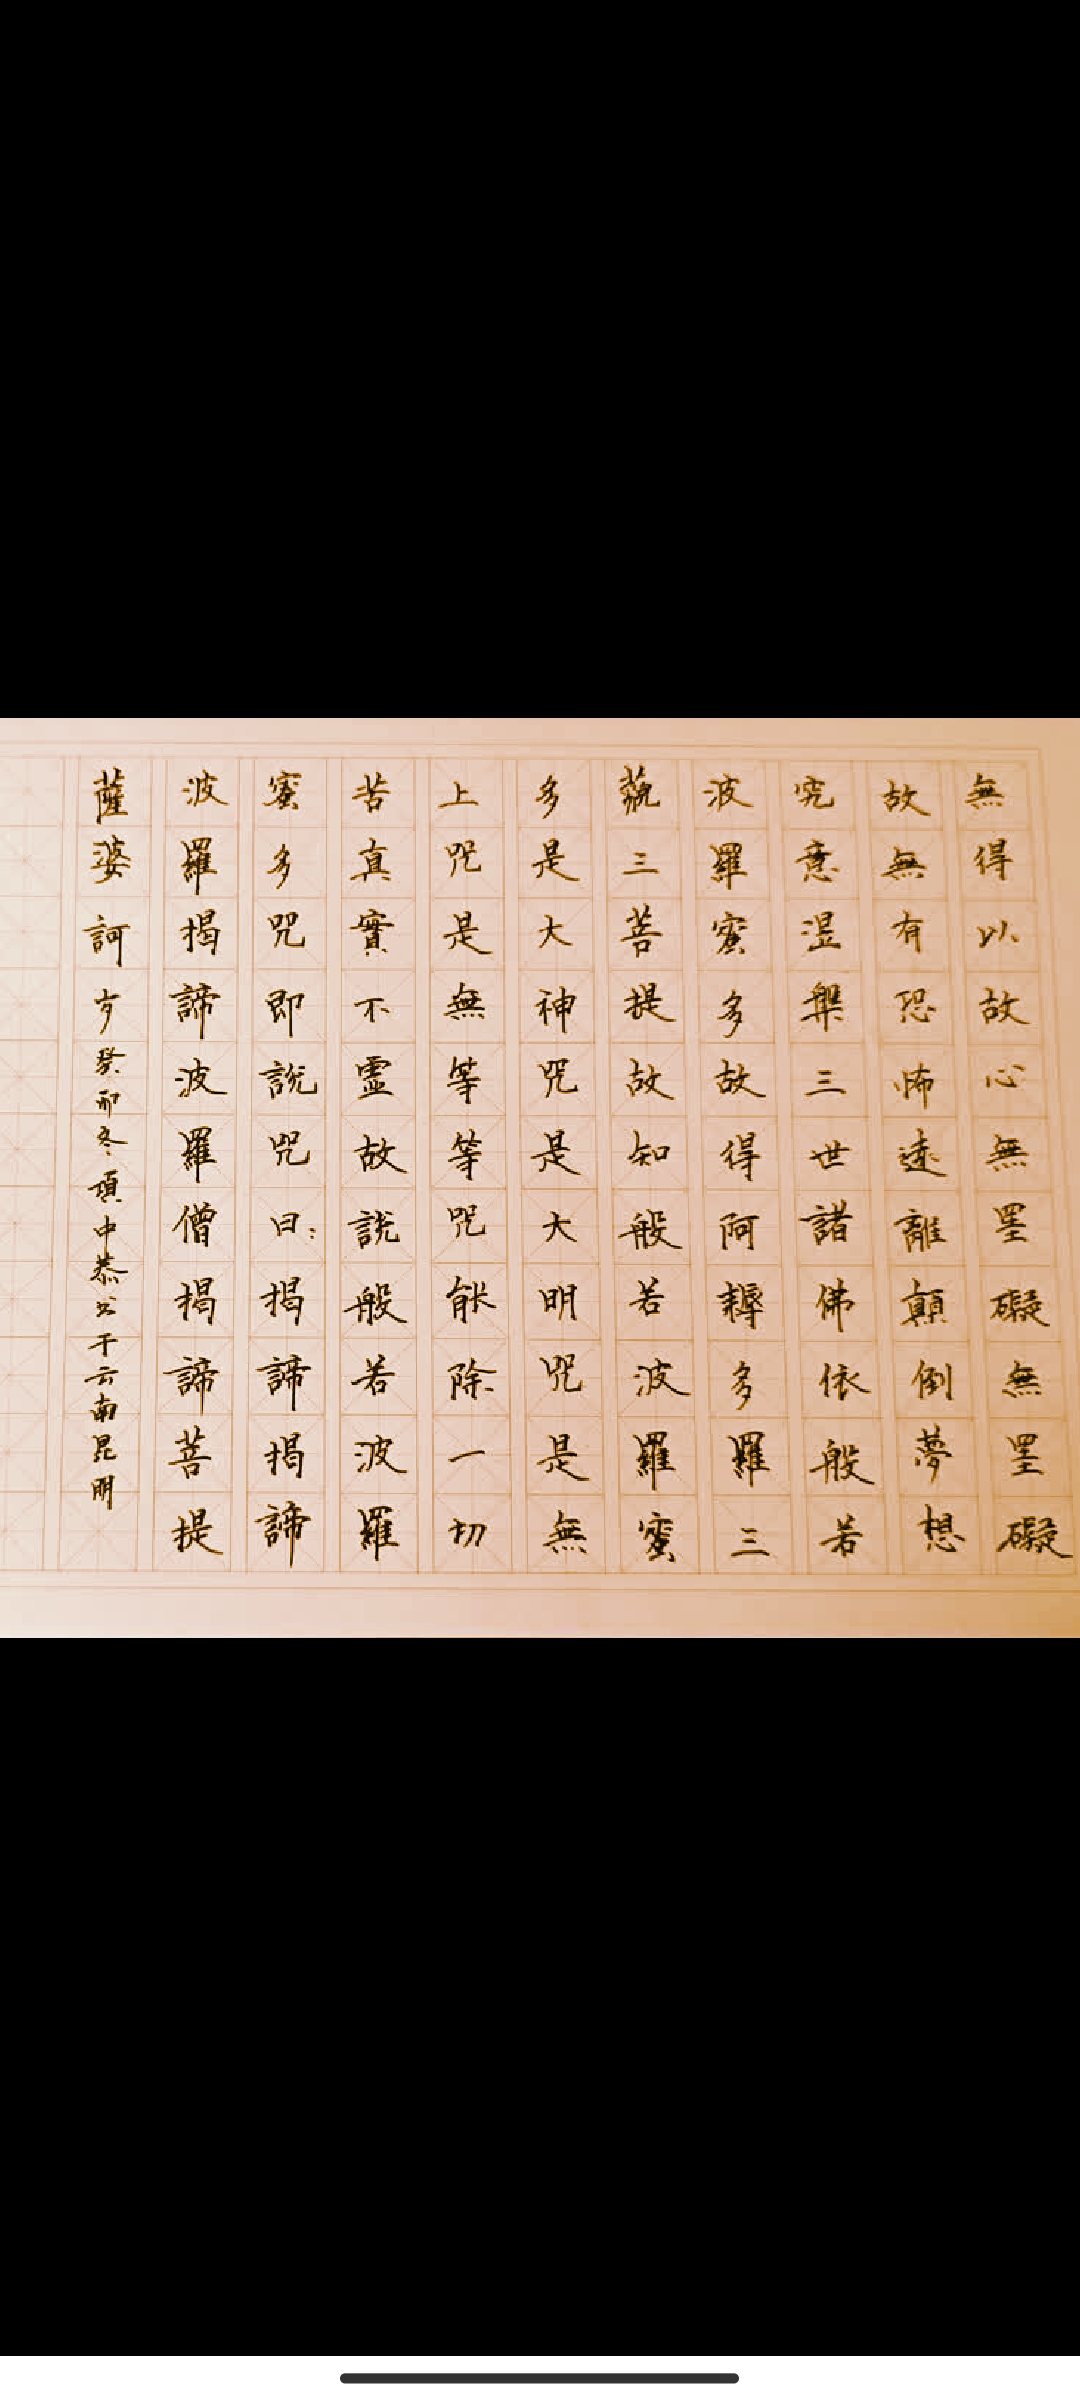 無得以故心無罣礙無罣礙
故無有恐怖遠離顛倒夢想
究意涅槃三世諸佛依般若
波羅蜜多故得阿耨多羅三
藐三菩提故知般若波羅蜜
多是大神咒是大明咒是無
上咒是無等等咒能除一切
苦真實不靈故說般若波羅
蜜多咒即說咒曰：揭諦揭諦
波羅揭諦波羅僧揭諦菩提
薩婆訶
岁癸卯冬項中恭书于云南昆明